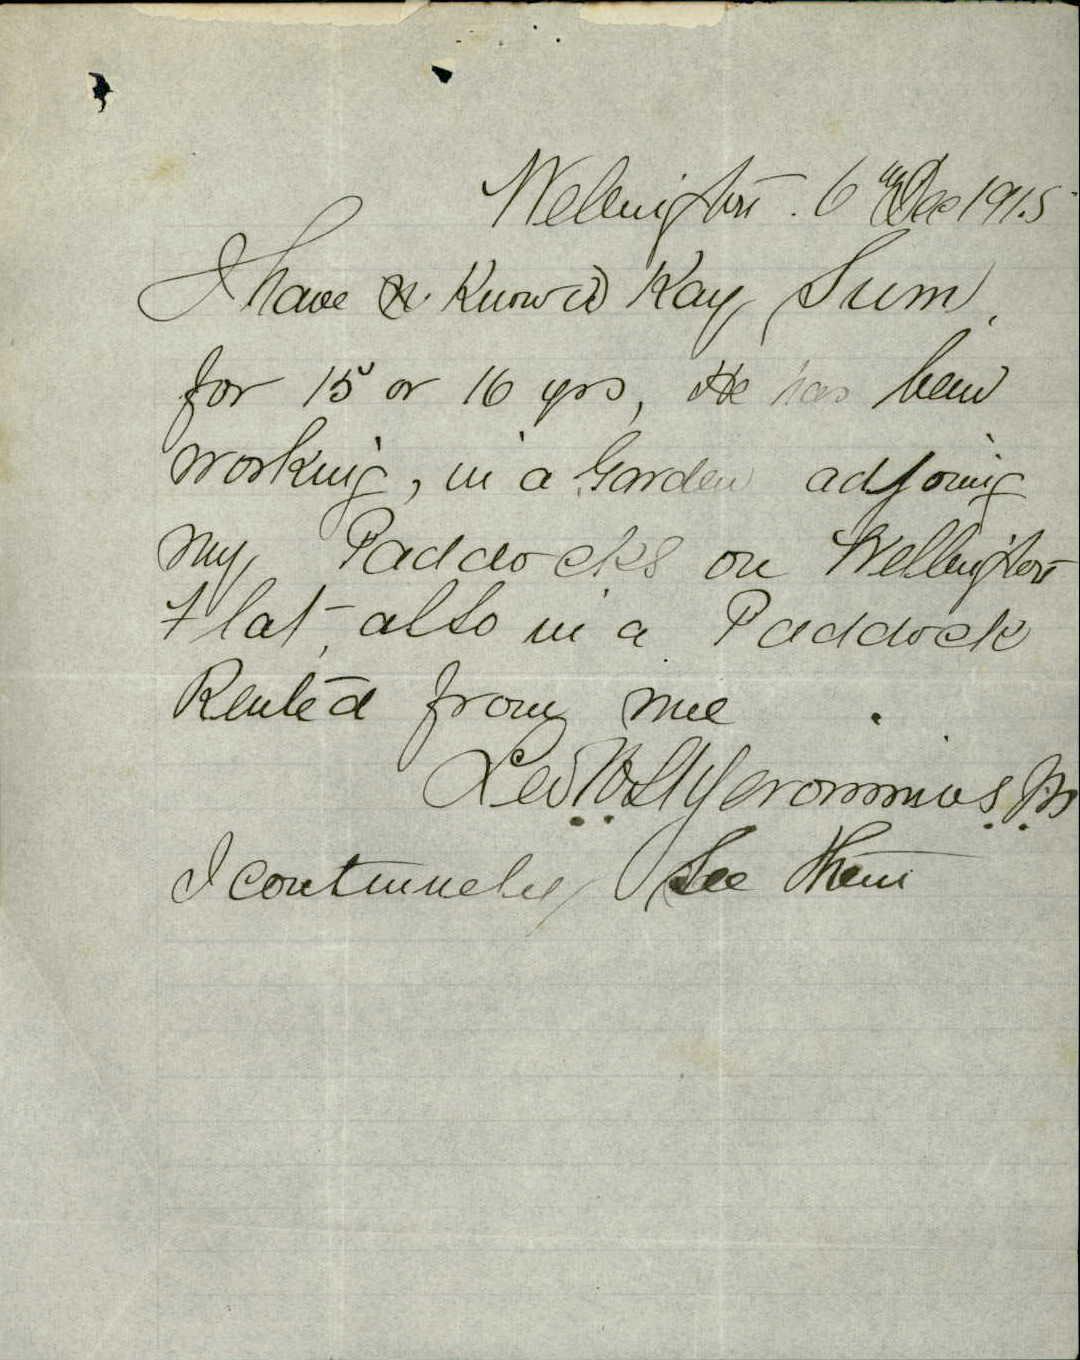 Wellington. 6th Dec 1915
I have known Kay Sum,
for 15 or 16 yrs, He has been
working, in a Garden adjoing
my Paddocks on Wellington
Flat, also in a Paddock
Rented from me
Geronimus JP
I continueley See them